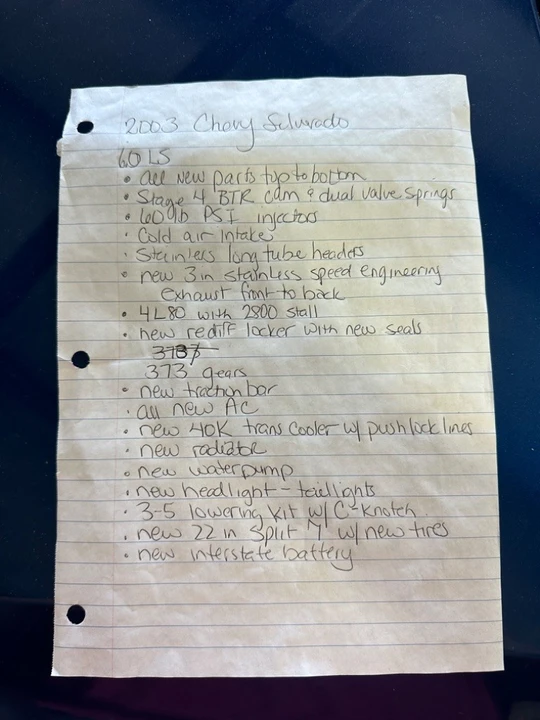 2003 Chevy Silverado
6.0 LS
• all new parts top to bottom
• Stage 4 BTR cam & dual valve springs
• 60 lb PSI injectors
• Cold air intake
• Stainless long tube headers
• new 3in stainless speed engineering
exhaust front to back
• 4L80 with 2800 stall
• new rediff locker with new seals
373 gears
• new traction bar
• all new AC
• new 40K trans cooler w/ pushlock lines
• new radiator
• new waterpump
• new headlight - taillights
• 3-5 lowering kit w/ C-Knotch
• new 22 in Split 7 w/ new tires
• new interstate battery